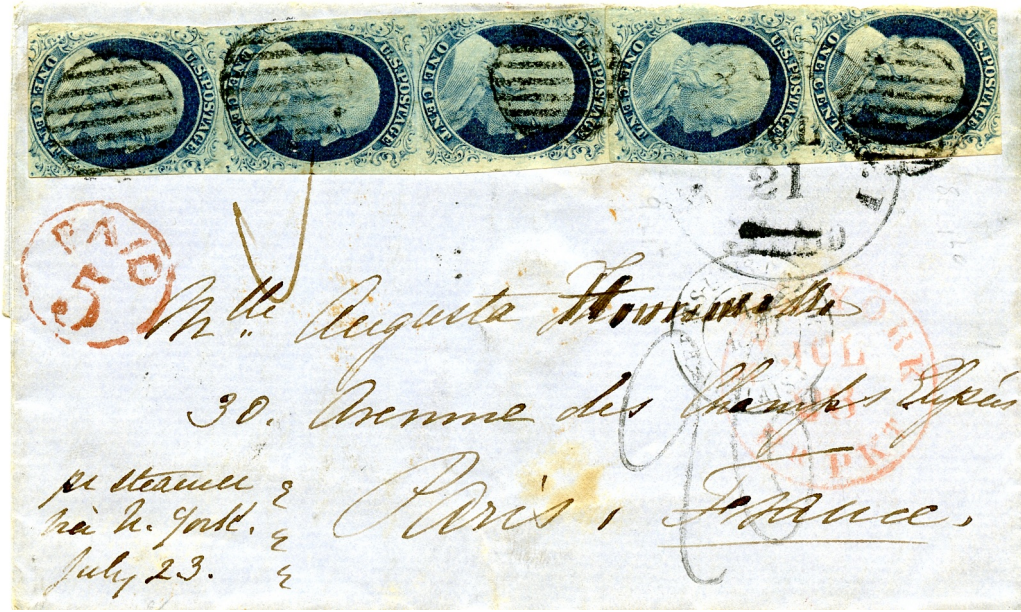 U.S. POSTAGE
ONE CENT
U.S. POSTAGE
ONE CENT
U.S. POSTAGE
ONE CENT
U.S. POSTAGE
ONE CENT
U.S. POSTAGE
ONE CENT
21
PAID
5
YORK
JUL
PKT
Mlle Augusta
30. Avenue des Champs Elysées
Paris, France.
pr steamer
via N. York.
July 23.